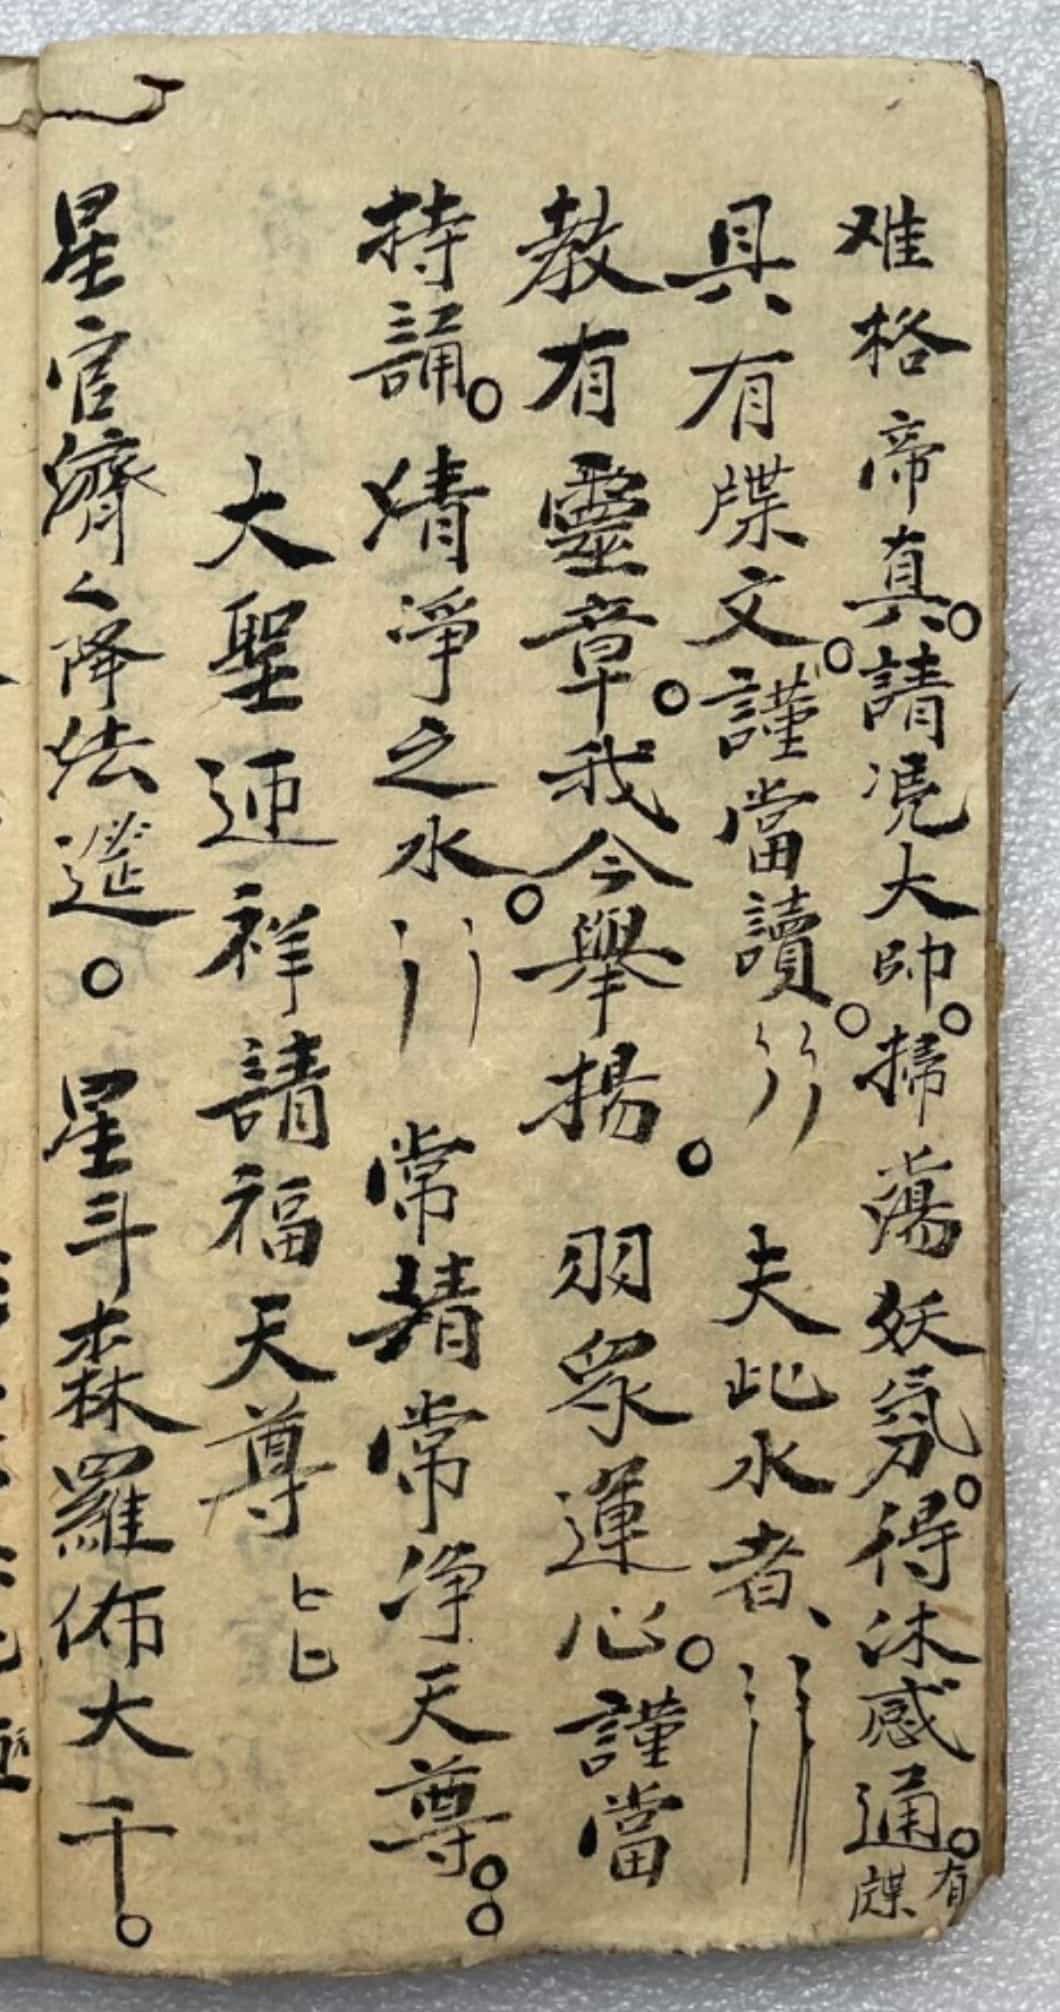 难格帝真。請凴大帥。掃蕩妖氛。得沐感通。有牒
具有牒文。謹當讀。〻〻 夫此水者、
教有靈章。我今舉揚。羽衆運心。謹當
持誦。清淨之水。 常清常淨天尊。。
大聖迊祥請福天尊
星官濟〻降法筵。星斗森羅佈大千。